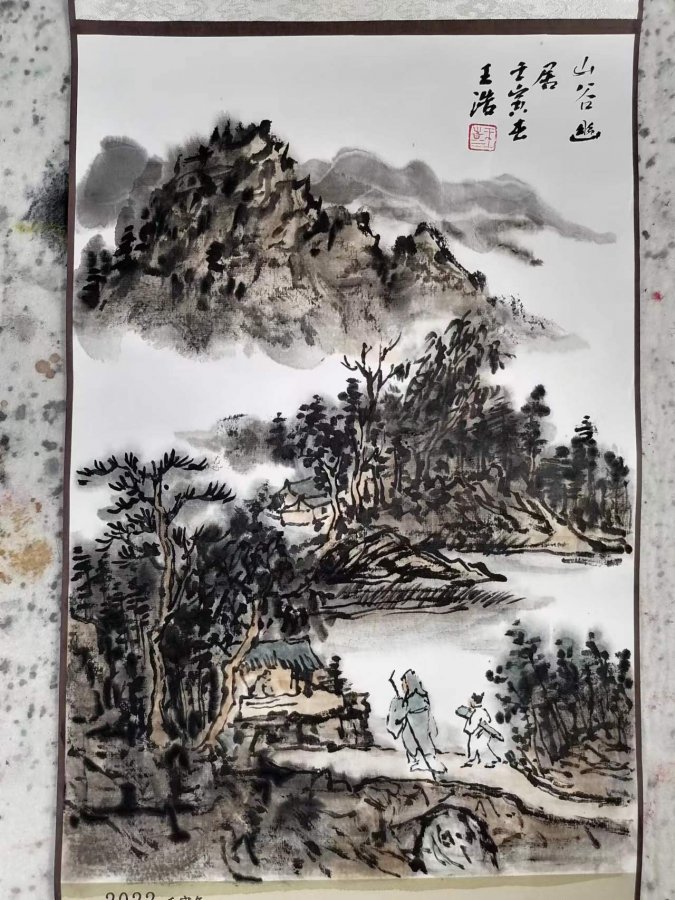 山谷幽
居
壬寅春
王浩
2022